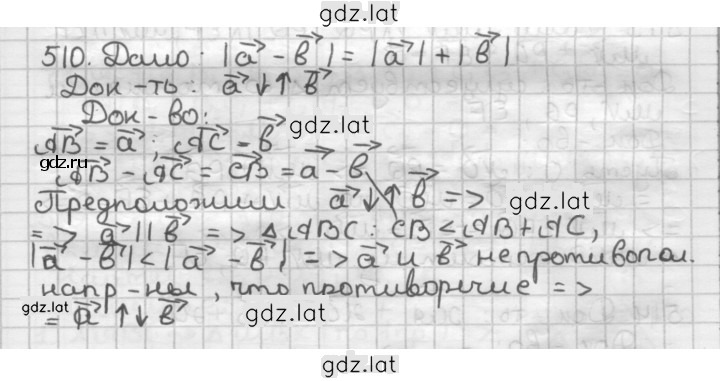 gdz.lat
510. Дано: |a⃗ - b⃗| = |a⃗| + |b⃗|
Док-ть: a⃗ ↓↑ b⃗
Док-во:
gdz.lat
AB⃗ = a⃗; AC⃗ = b⃗
gdz.ru
AB⃗ - AC⃗ = CB⃗ = a⃗ - b⃗
Предположим a⃗ ↓↑ b⃗ =>
gdz.lat
=> a⃗ || b⃗ => △ABC: CB < AB + AC,
|a⃗ - b⃗| < |a⃗ - b⃗| => a⃗ и b⃗ не противопол.
напр-ны, что противоречие =>
gdz.lat
= a⃗ ↑↓ b⃗
gdz.lat
gdz.lat